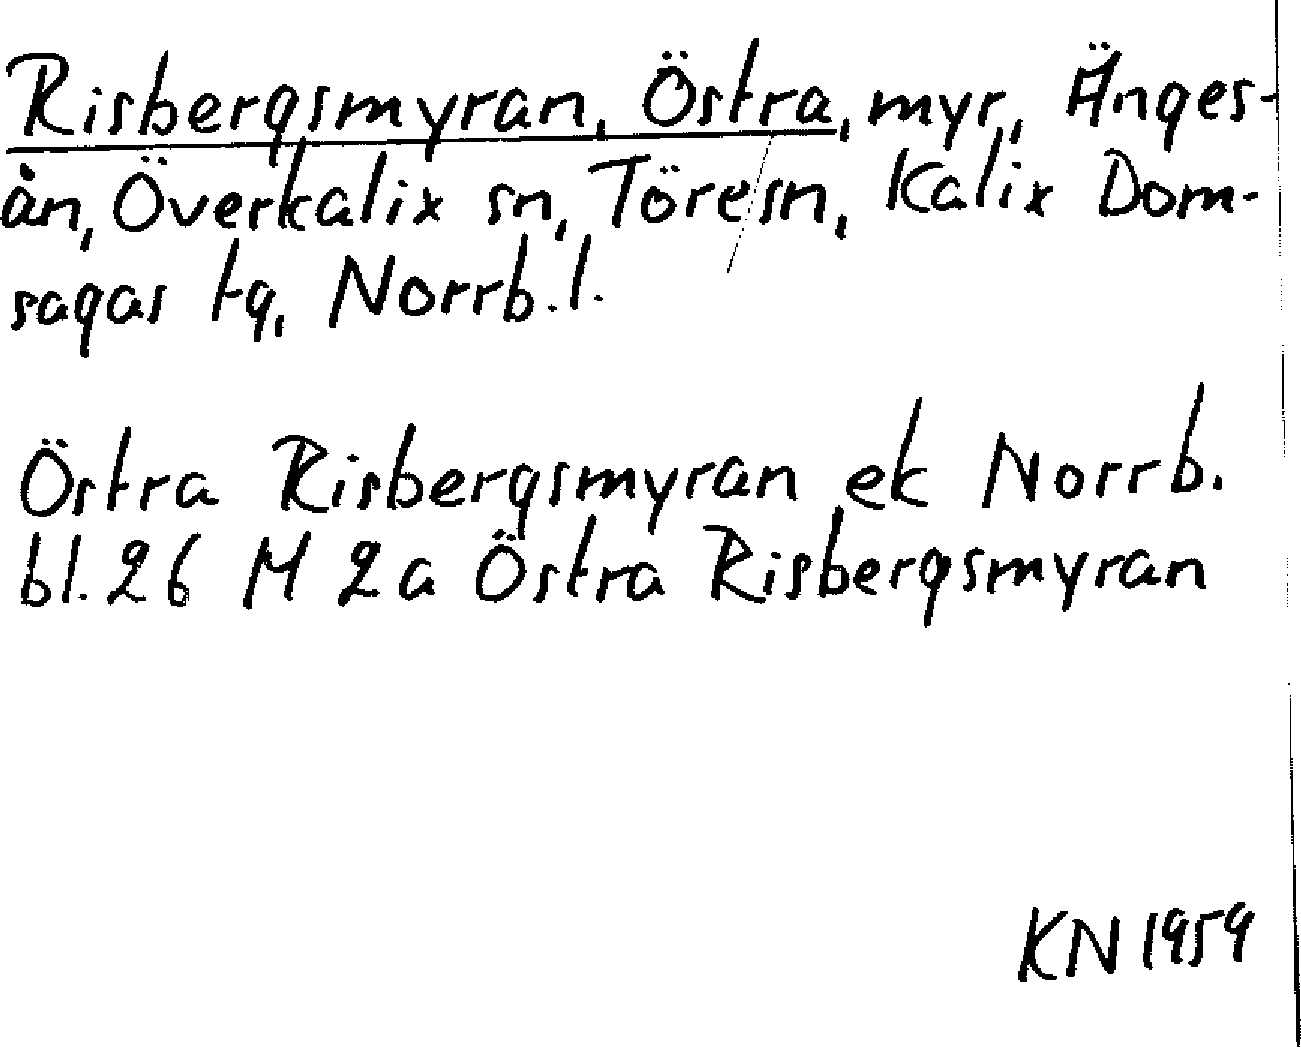 Risbergsmyran, Östra, myr, Änges-
ån, Överkalix sn, Töre sn, Kalix Dom-
sagas tg, Norrb. l.
Östra Risbergsmyran ek Norrb.
bl. 26 M 2a Östra Risbergsmyran
KN 1959